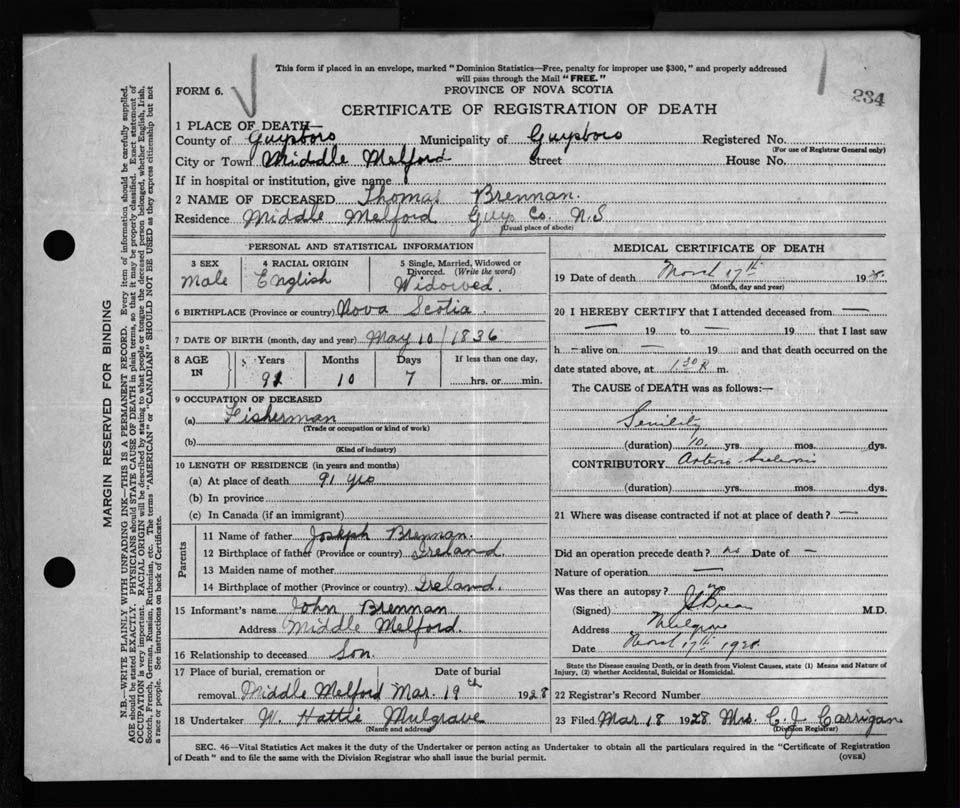 This form if placed in an envelope, marked "Dominion Statistics—Free, penalty for improper use $300," and properly addressed
will pass through the Mail "FREE."
FORM 6.
PROVINCE OF NOVA SCOTIA
234
CERTIFICATE OF REGISTRATION OF DEATH
1 PLACE OF DEATH—
County of Guysboro Municipality of Guysboro Registered No.
(For use of Registrar General only)
City or Town Middle Melford Street House No.
If in hospital or institution, give name
2 NAME OF DECEASED Thomas Brennan.
Residence Middle Melford Guys Co. N.S
(Usual place of abode)
PERSONAL AND STATISTICAL INFORMATION
3 SEX 4 RACIAL ORIGIN 5 Single, Married, Widowed or
Divorced. (Write the word)
Male English Widowed.
6 BIRTHPLACE (Province or country) Nova Scotia.
7 DATE OF BIRTH (month, day and year) May 10/1836
8 AGE IN Years Months Days If less than one day,
91 10 7 hrs. or min.
9 OCCUPATION OF DECEASED
(a) Fisherman
(Trade or occupation or kind of work)
(b)
(Kind of industry)
10 LENGTH OF RESIDENCE (in years and months)
(a) At place of death 91 yrs
(b) In province
(c) In Canada (if an immigrant)
Parents
11 Name of father Joseph Brennan.
12 Birthplace of father (Province or country) Ireland.
13 Maiden name of mother
14 Birthplace of mother (Province or country) Ireland.
15 Informant's name John Brennan
Address Middle Melford.
16 Relationship to deceased Son.
17 Place of burial, cremation or Date of burial
removal Middle Melford Mar. 19th 1928
18 Undertaker W. Hattie Mulgrave
(Name and address)
MEDICAL CERTIFICATE OF DEATH
19 Date of death March 17th 1928
(Month, day and year)
20 I HEREBY CERTIFY that I attended deceased from —
— 19 to — 19 that I last saw
h — alive on — 19 and that death occurred on the
date stated above, at 1.30 P. m.
The CAUSE of DEATH was as follows:—
Senility
(duration) 10 yrs. mos. dys.
CONTRIBUTORY Arterio-Sclerosis
(duration) yrs. mos. dys.
21 Where was disease contracted if not at place of death? —
Did an operation precede death? no Date of —
Nature of operation —
Was there an autopsy?
(Signed) M.D.
Address Mulgrave
Date March 17th 1928
State the Disease causing Death, or in death from Violent Causes, state (1) Means and Nature of
Injury, (2) whether Accidental, Suicidal or Homicidal.
22 Registrar's Record Number
23 Filed Mar 18 1928 Mrs. C. J. Carrigan
(Division Registrar)
SEC. 46—Vital Statistics Act makes it the duty of the Undertaker or person acting as Undertaker to obtain all the particulars required in the "Certificate of Registration
of Death" and to file the same with the Division Registrar who shall issue the burial permit.
(OVER)
MARGIN RESERVED FOR BINDING
N.B.—WRITE PLAINLY WITH UNFADING INK—THIS IS A PERMANENT RECORD. Every item of information should be carefully supplied.
AGE should be stated EXACTLY. PHYSICIANS should STATE CAUSE OF DEATH in plain terms, so that it may be properly classified. Exact statement of
OCCUPATION is very important. RACIAL ORIGIN will be described by stating to what people or tongue the deceased person belonged, whether English, Irish,
Scotch, French, German, Russian, Ruthenian, etc. The terms "AMERICAN" or "CANADIAN" SHOULD NOT BE USED as they express citizenship but not
a race or people. See instructions on back of Certificate.